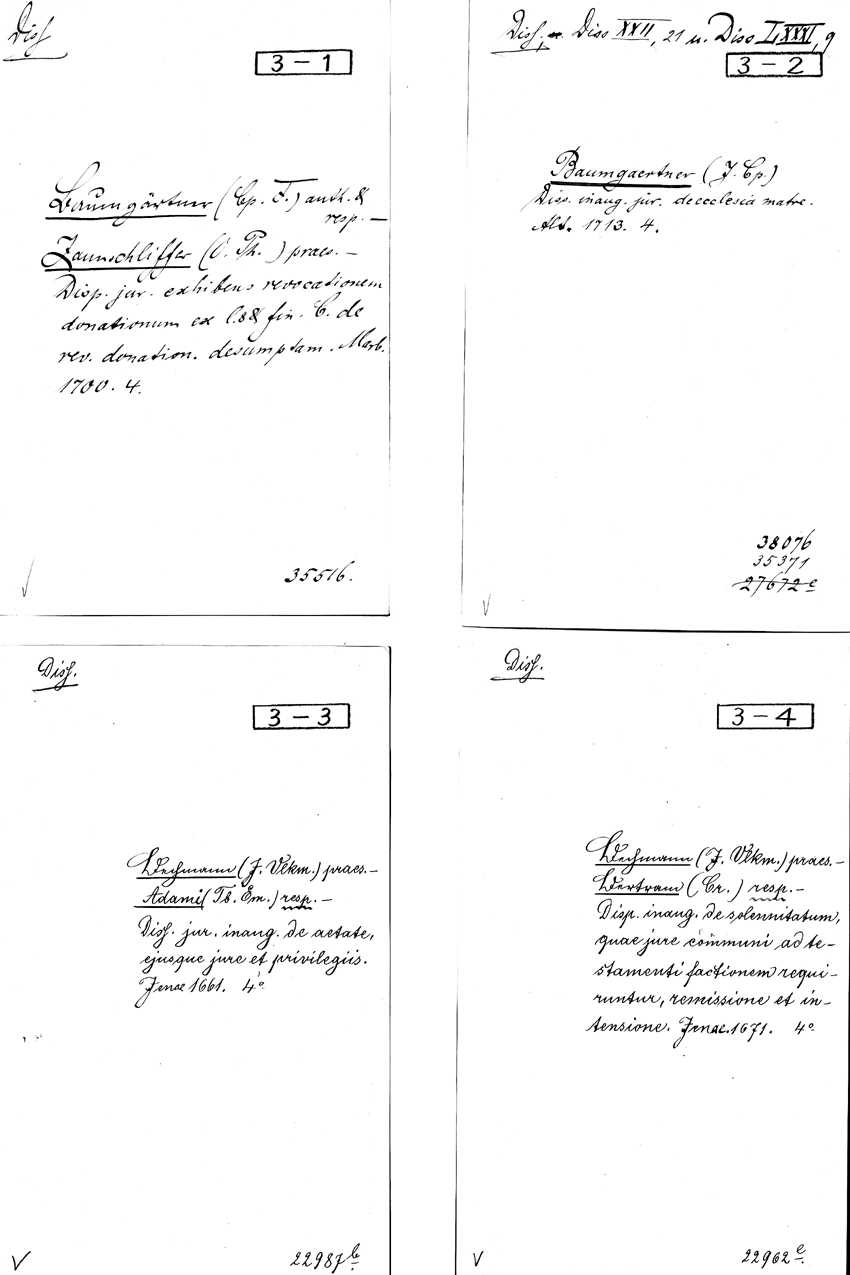 Diss
3-1
Baumgärtner (Cp. F.) auth. &
resp. —
Zaunschliffer (O. Ph.) praes. —
Disp. jur. exhibens revocationem
donationum ex l. 8 & fin. C. de
rev. donation. desumptam. Marb.
1700. 4.
35516.
V
Diss, u. Diss XXII, 21 u. Diss LXXXI, 9
3-2
Baumgaertner (J. Cp.)
Diss. inaug. jur. de ecclesia matre.
Alt. 1713. 4.
38076
35371
27672 e
V
Diss.
3-3
Bechmann (J. Vlkm.) praes. —
Adami (Tb. Em.) resp. —
Diss. jur. inaug. de aetate,
ejusque jure et privilegiis.
Jenae 1661. 4°
22987 b
V
Diss.
3-4
Bechmann (J. Vlkm.) praes. —
Bertram (Cr.) resp. —
Disp. inaug. de solennitatum,
quae jure communi ad te-
stamenti factionem requi-
runtur, remissione et in-
tensione. Jenae. 1671. 4°
22962 e
V